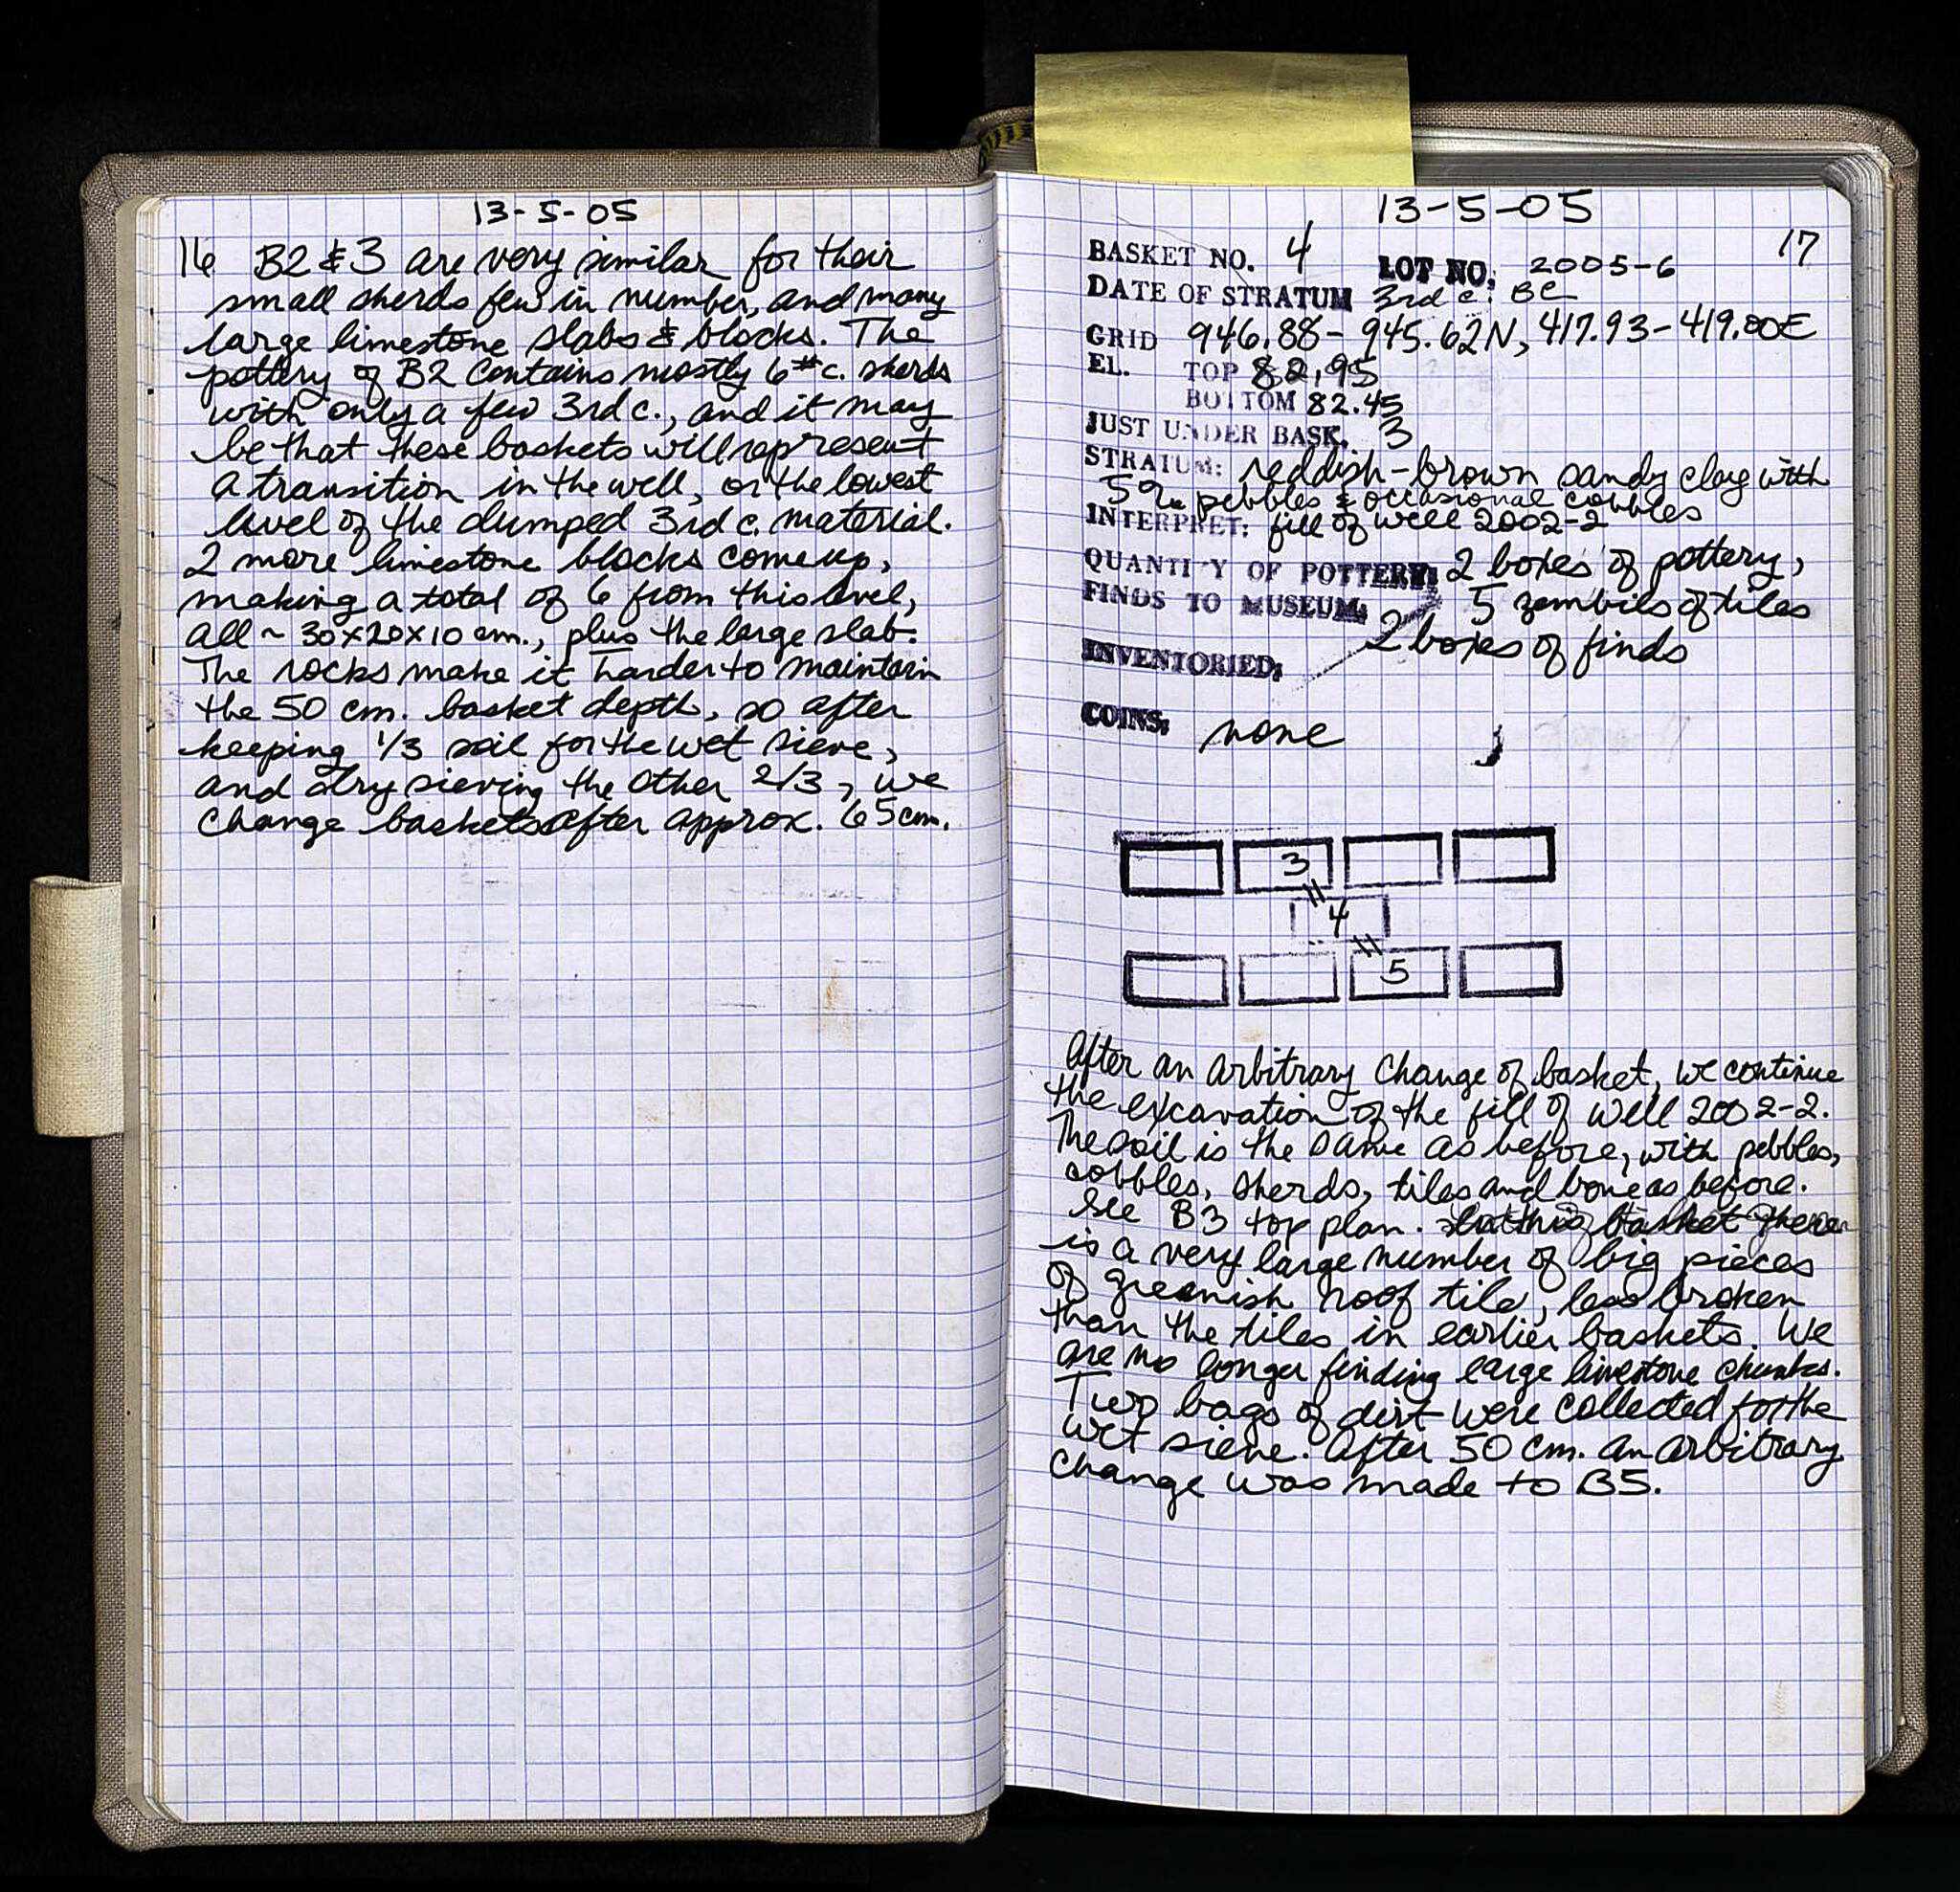 13-5-05
16 B2 & 3 are very similar for their
small sherds few in number, and many
large limestone slabs & blocks. The
pottery of B2 contains mostly 6th c. sherds
with only a few 3rd c., and it may
be that these baskets will represent
a transition in the well, or the lowest
level of the dumped 3rd c. material.
2 more limestone blocks come up,
making a total of 6 from this level,
all ~ 30x20x10 cm., plus the large slab.
The rocks make it harder to maintain
the 50 cm. basket depth, so after
keeping 1/3 soil for the wet sieve,
and dry sieving the other 2/3, we
change baskets after approx. 65 cm.
13-5-05
17
BASKET NO. 4 LOT NO. 2005-6
DATE OF STRATUM 3rd c. BC
GRID 946.88-945.62N, 417.93-419.00E
EL. TOP 82.95
BOTTOM 82.45
JUST UNDER BASK. 3
STRATUM: reddish-brown sandy clay with
5% pebbles & occasional cobbles
INTERPRET: fill of well 2002-2
QUANTITY OF POTTERY: 2 boxes of pottery,
5 zembils of tiles
FINDS TO MUSEUM:
2 boxes of finds
INVENTORIED:
COINS: none
3
4
5
After an arbitrary change of basket, we continue
the excavation of the fill of well 2002-2.
The soil is the same as before, with pebbles,
cobbles, sherds, tiles and bone as before.
See B3 top plan. In this basket there
is a very large number of big pieces
of greenish roof tile, less broken
than the tiles in earlier baskets. We
are no longer finding large limestone chunks.
Two bags of dirt were collected for the
wet sieve. After 50 cm. an arbitrary
change was made to B5.